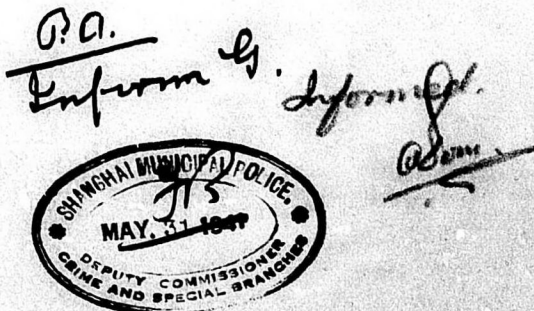 P.A.
Inform G.
Informed.
SHANGHAI MUNICIPAL POLICE.
MAY. 31 1941
DEPUTY COMMISSIONER
CRIME AND SPECIAL BRANCHES